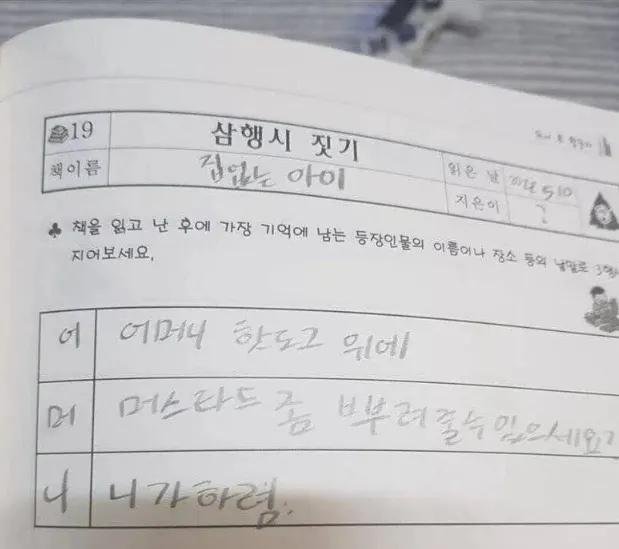 19 삼행시 짓기
책이름 집없는 아이 읽은 날 5 10
지은이 ?
♣ 책을 읽고 난 후에 가장 기억에 남는 등장인물의 이름이나 장소 등의 낱말로 3행
지어보세요.
어 어머니 핫도그 위에
머 머스타드 좀 뿌려줄수 있으세요?
니 니가하렴.